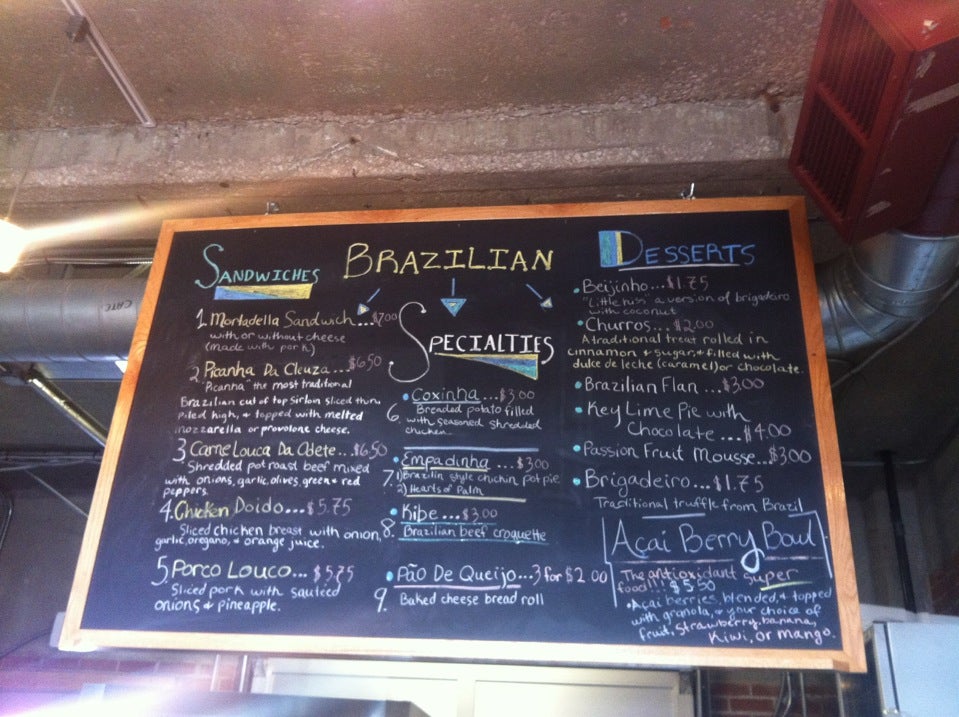 BRAZILIAN
SANDWICHES
1. Mortadella Sandwich...$7.00
with or without cheese
(made with pork)
2. Picanha Da Cleuza...$6.50
"Picanha" the most traditional
Brazilian cut of top sirloin sliced thin,
piled high, & topped with melted
mozzarella or provolone cheese.
3 Carne Louca Da Odete...$6.50
Shredded pot roast beef mixed
with onions, garlic, olives, green & red
peppers.
4. Chicken Doido...$5.75
Sliced chicken breast with onion,
garlic, oregano, & orange juice.
5 Porco Louco...$5.75
Sliced pork with sauteed
onions & pineapple.
SPECIALTIES
Coxinha...$3.00
6. Breaded potato filled
with seasoned shredded
chicken.
Empadinha...$3.00
7. 1) Brazilin style chickin pot pie
2) Hearts of Palm
Kibe...$3.00
8. Brazilian beef croquette
Pão De Queijo...3 for $2.00
9. Baked cheese bread roll
DESSERTS
Beijinho...$1.75
"Little kiss" a version of brigadeiro
with coconut
Churros...$2.00
A traditional treat rolled in
cinnamon & sugar & filled with
dulce de leche (caramel) or chocolate.
Brazilian Flan...$3.00
Key Lime Pie with
Chocolate...$4.00
Passion Fruit Mousse...$3.00
Brigadeiro...$1.75
Traditional truffle from Brazil
Acai Berry Bowl
The antioxidant super
food!!! $5.50
Acai berries, blended, & topped
with granola, & your choice of
fruit, strawberry, banana,
Kiwi, or mango.